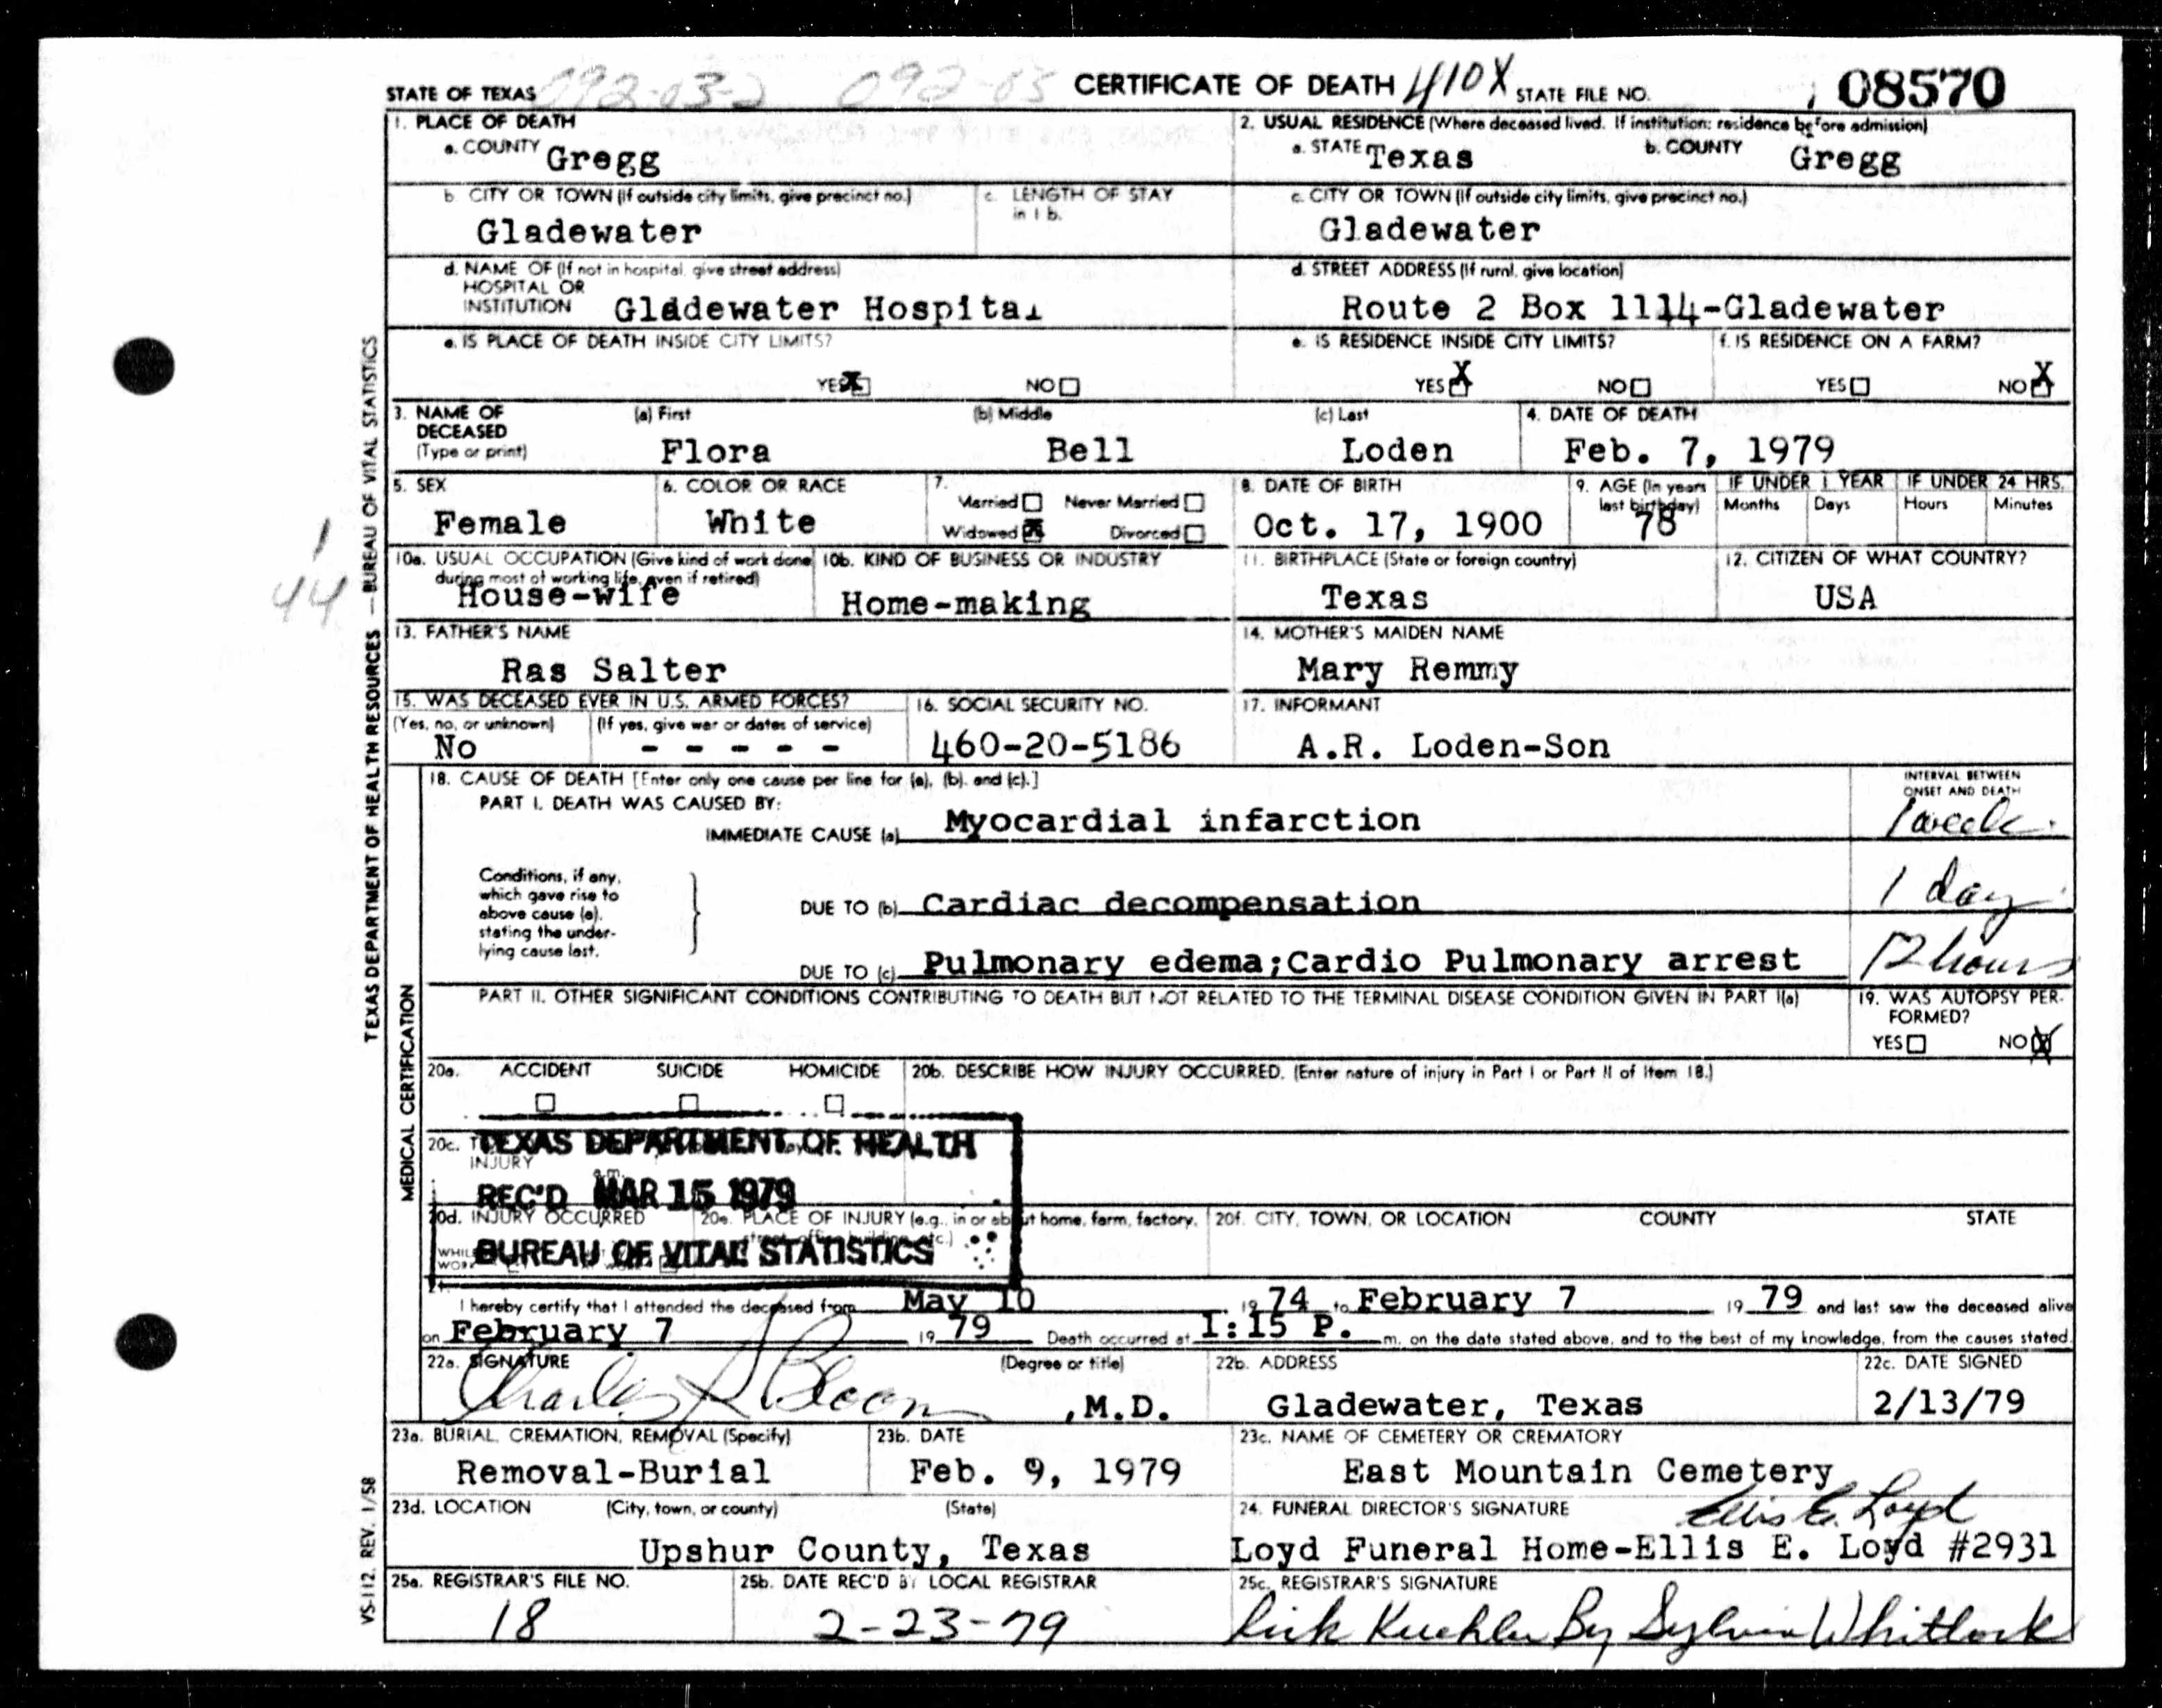 STATE OF TEXAS 092-03-2 092-03 CERTIFICATE OF DEATH 410X STATE FILE NO. 08570
1. PLACE OF DEATH
a. COUNTY Gregg
2. USUAL RESIDENCE (Where deceased lived. If institution: residence before admission)
a. STATE Texas b. COUNTY Gregg
b. CITY OR TOWN (If outside city limits, give precinct no.)
Gladewater
c. LENGTH OF STAY
in 1 b.
c. CITY OR TOWN (If outside city limits, give precinct no.)
Gladewater
d. NAME OF (If not in hospital, give street address)
HOSPITAL OR
INSTITUTION Gladewater Hospital
d. STREET ADDRESS (If rural, give location)
Route 2 Box 1114-Gladewater
e. IS PLACE OF DEATH INSIDE CITY LIMITS?
YES X NO
e. IS RESIDENCE INSIDE CITY LIMITS?
YES X NO
f. IS RESIDENCE ON A FARM?
YES NO X
3. NAME OF
DECEASED
(Type or print)
(a) First (b) Middle (c) Last
Flora Bell Loden
4. DATE OF DEATH
Feb. 7, 1979
5. SEX
Female
6. COLOR OR RACE
White
7.
Married Never Married
Widowed X Divorced
8. DATE OF BIRTH
Oct. 17, 1900
9. AGE (In years
last birthday)
78
IF UNDER 1 YEAR IF UNDER 24 HRS.
Months Days Hours Minutes
1
44
10a. USUAL OCCUPATION (Give kind of work done
during most of working life, even if retired)
House-wife
10b. KIND OF BUSINESS OR INDUSTRY
Home-making
11. BIRTHPLACE (State or foreign country)
Texas
12. CITIZEN OF WHAT COUNTRY?
USA
13. FATHER'S NAME
Ras Salter
14. MOTHER'S MAIDEN NAME
Mary Remmy
15. WAS DECEASED EVER IN U.S. ARMED FORCES?
(Yes, no, or unknown) (If yes, give war or dates of service)
No - - - - -
16. SOCIAL SECURITY NO.
460-20-5186
17. INFORMANT
A.R. Loden-Son
18. CAUSE OF DEATH [Enter only one cause per line for (a), (b), and (c).]
PART I. DEATH WAS CAUSED BY:
IMMEDIATE CAUSE (a) Myocardial infarction
INTERVAL BETWEEN
ONSET AND DEATH
1 week
Conditions, if any,
which gave rise to
above cause (a),
stating the under-
lying cause last.
DUE TO (b) Cardiac decompensation 1 day
DUE TO (c) Pulmonary edema;Cardio Pulmonary arrest 12 hours
PART II. OTHER SIGNIFICANT CONDITIONS CONTRIBUTING TO DEATH BUT NOT RELATED TO THE TERMINAL DISEASE CONDITION GIVEN IN PART I(a)
19. WAS AUTOPSY PER-
FORMED?
YES NO X
20a. ACCIDENT SUICIDE HOMICIDE
20b. DESCRIBE HOW INJURY OCCURRED. (Enter nature of injury in Part I or Part II of Item 18.)
20c.
INJURY
a.m.
TEXAS DEPARTMENT OF HEALTH
REC'D MAR 15 1979
BUREAU OF VITAL STATISTICS
20d. INJURY OCCURRED
20e. PLACE OF INJURY (e.g., in or about home, farm, factory,
street, office building, etc.)
20f. CITY, TOWN, OR LOCATION COUNTY STATE
21.
I hereby certify that I attended the deceased from May 10 1974 to February 7 1979 and last saw the deceased alive
on February 7 1979 Death occurred at 1:15 P. m. on the date stated above, and to the best of my knowledge, from the causes stated.
22a. SIGNATURE (Degree or title)
Charles , M.D.
22b. ADDRESS
Gladewater, Texas
22c. DATE SIGNED
2/13/79
23a. BURIAL, CREMATION, REMOVAL (Specify)
Removal-Burial
23b. DATE
Feb. 9, 1979
23c. NAME OF CEMETERY OR CREMATORY
East Mountain Cemetery
23d. LOCATION (City, town, or county) (State)
Upshur County, Texas
24. FUNERAL DIRECTOR'S SIGNATURE Ellis E. Loyd
Loyd Funeral Home-Ellis E. Loyd #2931
25a. REGISTRAR'S FILE NO.
18
25b. DATE REC'D BY LOCAL REGISTRAR
2-23-79
25c. REGISTRAR'S SIGNATURE
Rick Kuehler By Sylvia Whitlock
TEXAS DEPARTMENT OF HEALTH RESOURCES — BUREAU OF VITAL STATISTICS
MEDICAL CERTIFICATION
VS-112. REV. 1/58